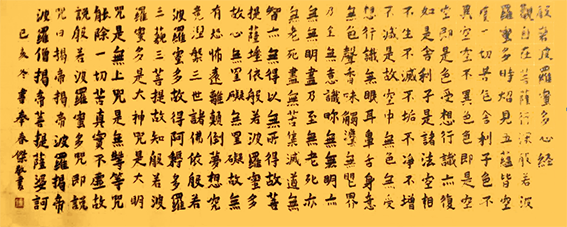 般若波羅蜜多心經
觀自在菩薩行深般若波
羅蜜多時照見五蘊皆空
度一切苦厄舍利子色不
異空空不異色色即是空
空即是色受想行識亦復
如是舍利子是諸法空相
不生不滅不垢不淨不增
不減是故空中無色無受
想行識無眼耳鼻舌身意
無色聲香味觸法無眼界
乃至無意識界無無明亦
無無明盡乃至無老死亦
無老死盡無苦集滅道無
智亦無得以無所得故菩
提薩埵依般若波羅蜜多
故心無罣礙無罣礙故無
有恐怖遠離顛倒夢想究
竟涅槃三世諸佛依般若
波羅蜜多故得阿耨多羅
三藐三菩提故知般若波
羅蜜多是大神咒是大明
咒是無上咒是無等等咒
能除一切苦真實不虛故
說般若波羅蜜多咒即說
咒曰揭帝揭帝波羅揭帝
波羅僧揭帝菩提薩婆訶
己亥冬書